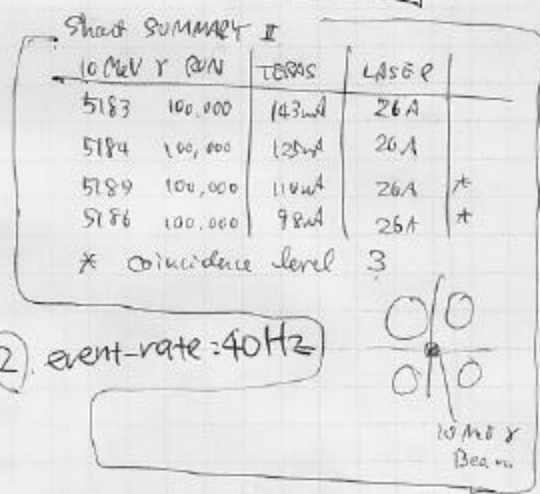 Short SUMMARY II
10 MeV γ RUN TERAS LASER
5183 100,000 143mA 26A
5184 100,000 125mA 26A
5189 100,000 110mA 26A *
5186 100,000 98mA 26A *
* coincidence level 3
2). event-rate : 40Hz
10 MeV γ
Beam